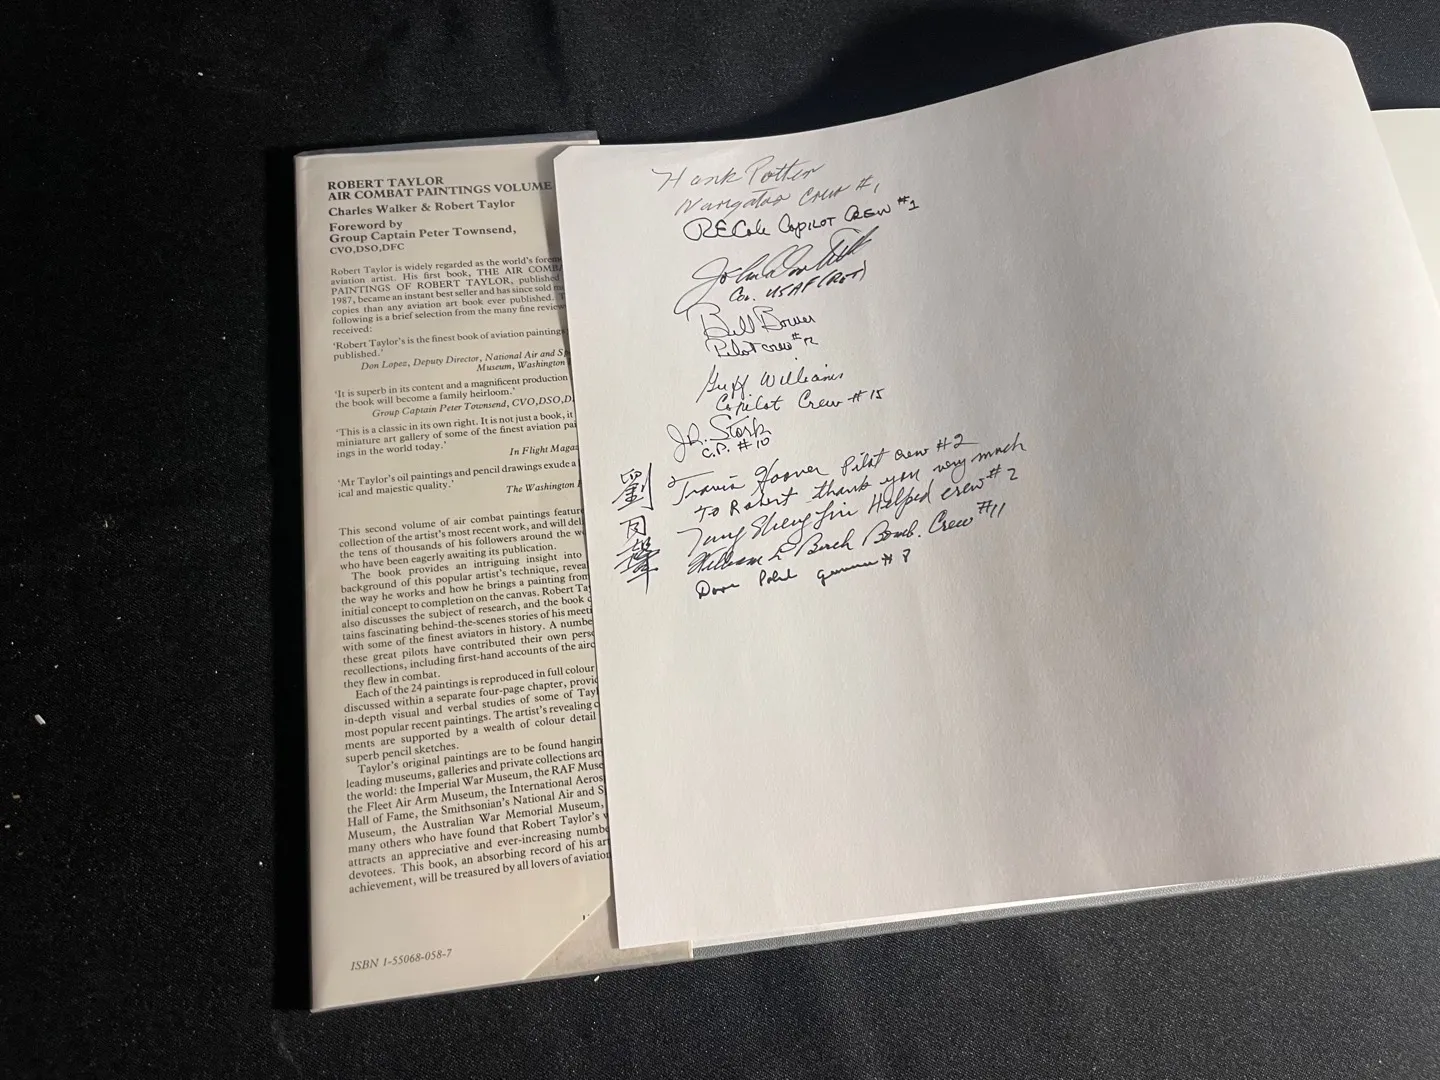 ROBERT TAYLOR
AIR COMBAT PAINTINGS VOLUME
Charles Walker & Robert Taylor
Foreword by
Group Captain Peter Townsend,
CVO,DSO,DFC
Robert Taylor is widely regarded as the world's
aviation artist. His first book, THE AIR
PAINTINGS OF ROBERT TAYLOR, published
1987, became an instant best seller and has since sold
copies than any aviation art book ever published.
following is a brief selection from the many fine
received:
'Robert Taylor's is the finest book of aviation paintings
published.'
Don Lopez, Deputy Director, National Air and
Museum, Washington
'It is superb in its content and a magnificent production
the book will become a family heirloom.'
Group Captain Peter Townsend, CVO,DSO,D
'This is a classic in its own right. It is not just a book, it
miniature art gallery of some of the finest aviation
ings in the world today.'
In Flight
'Mr Taylor's oil paintings and pencil drawings exude a
ical and majestic quality.'
The Washington
This second volume of air combat paintings
collection of the artist's most recent work, and will
the tens of thousands of his followers around the
who have been eagerly awaiting its publication.
The book provides an intriguing insight into
background of this popular artist's technique,
the way he works and how he brings a painting from
initial concept to completion on the canvas. Robert
also discusses the subject of research, and the book
tains fascinating behind-the-scenes stories of his
with some of the finest aviators in history. A
these great pilots have contributed their own
recollections, including first-hand accounts of the
they flew in combat.
Each of the 24 paintings is reproduced in full colour
discussed within a separate four-page chapter,
in-depth visual and verbal studies of some of
most popular recent paintings. The artist's revealing
ments are supported by a wealth of colour detail
superb pencil sketches.
Taylor's original paintings are to be found
leading museums, galleries and private collections
the world: the Imperial War Museum, the RAF
the Fleet Air Arm Museum, the International
Hall of Fame, the Smithsonian's National Air and
Museum, the Australian War Memorial Museum,
many others who have found that Robert Taylor's
attracts an appreciative and ever-increasing
devotees. This book, an absorbing record of his
achievement, will be treasured by all lovers of
ISBN 1-55068-058-7
Hank Potter
Navigator Crew #1
RECole Copilot CREW #1
Col. USAF (Ret)
Bill Bower
Pilot crew #12
Griff Williams
Copilot Crew #15
J.R. Stork
C.P. #10
Travis Hoover Pilot crew #2
To Robert thank you very much
Tung Sheng Liu Helped crew #2
William L Birch Bomb. Crew #11
Dave Pohl gunner #8
劉同聲